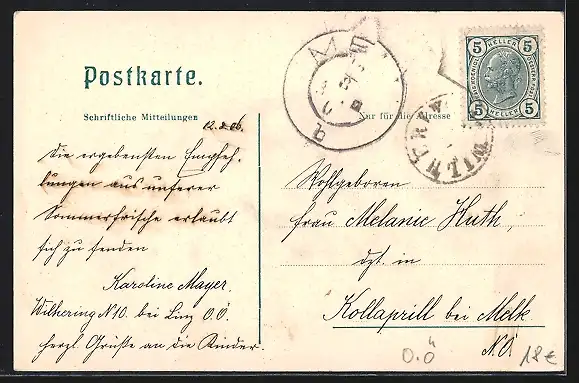 Postkarte.
Schriftliche Mitteilungen
Nur für die Adresse
12.8.06.
die ergebensten Empfeh-
lungen aus unserer
Sommerfrische erlaubt
sich zu senden
Karoline Mayer.
Wilhering N10. bei Linz O.Ö.
herzl. Grüße an die Kinder
Wohlgeboren
Frau Melanie Huth,
dzt. in
Kollapriell bei Melk.
N.Ö
O.Ö
18€
5 HELLER 5
5 HELLER 5
WILHERING